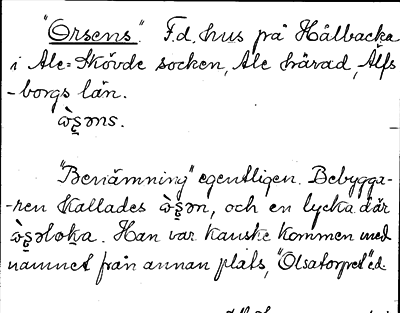 "Orsens". F.d. hus på Hålbacka
i Ale-Skövde socken, Ale härad, Älfs
-borgs län.
ὼs̱əns.
"Benämning" egentligen. Bebygga-
-ren kallades ὼs̱ən, och en lycka där
ὼs̱əloka. Han var kanske kommen med
namnet från annan plats, "Olsatorpet" e.d.